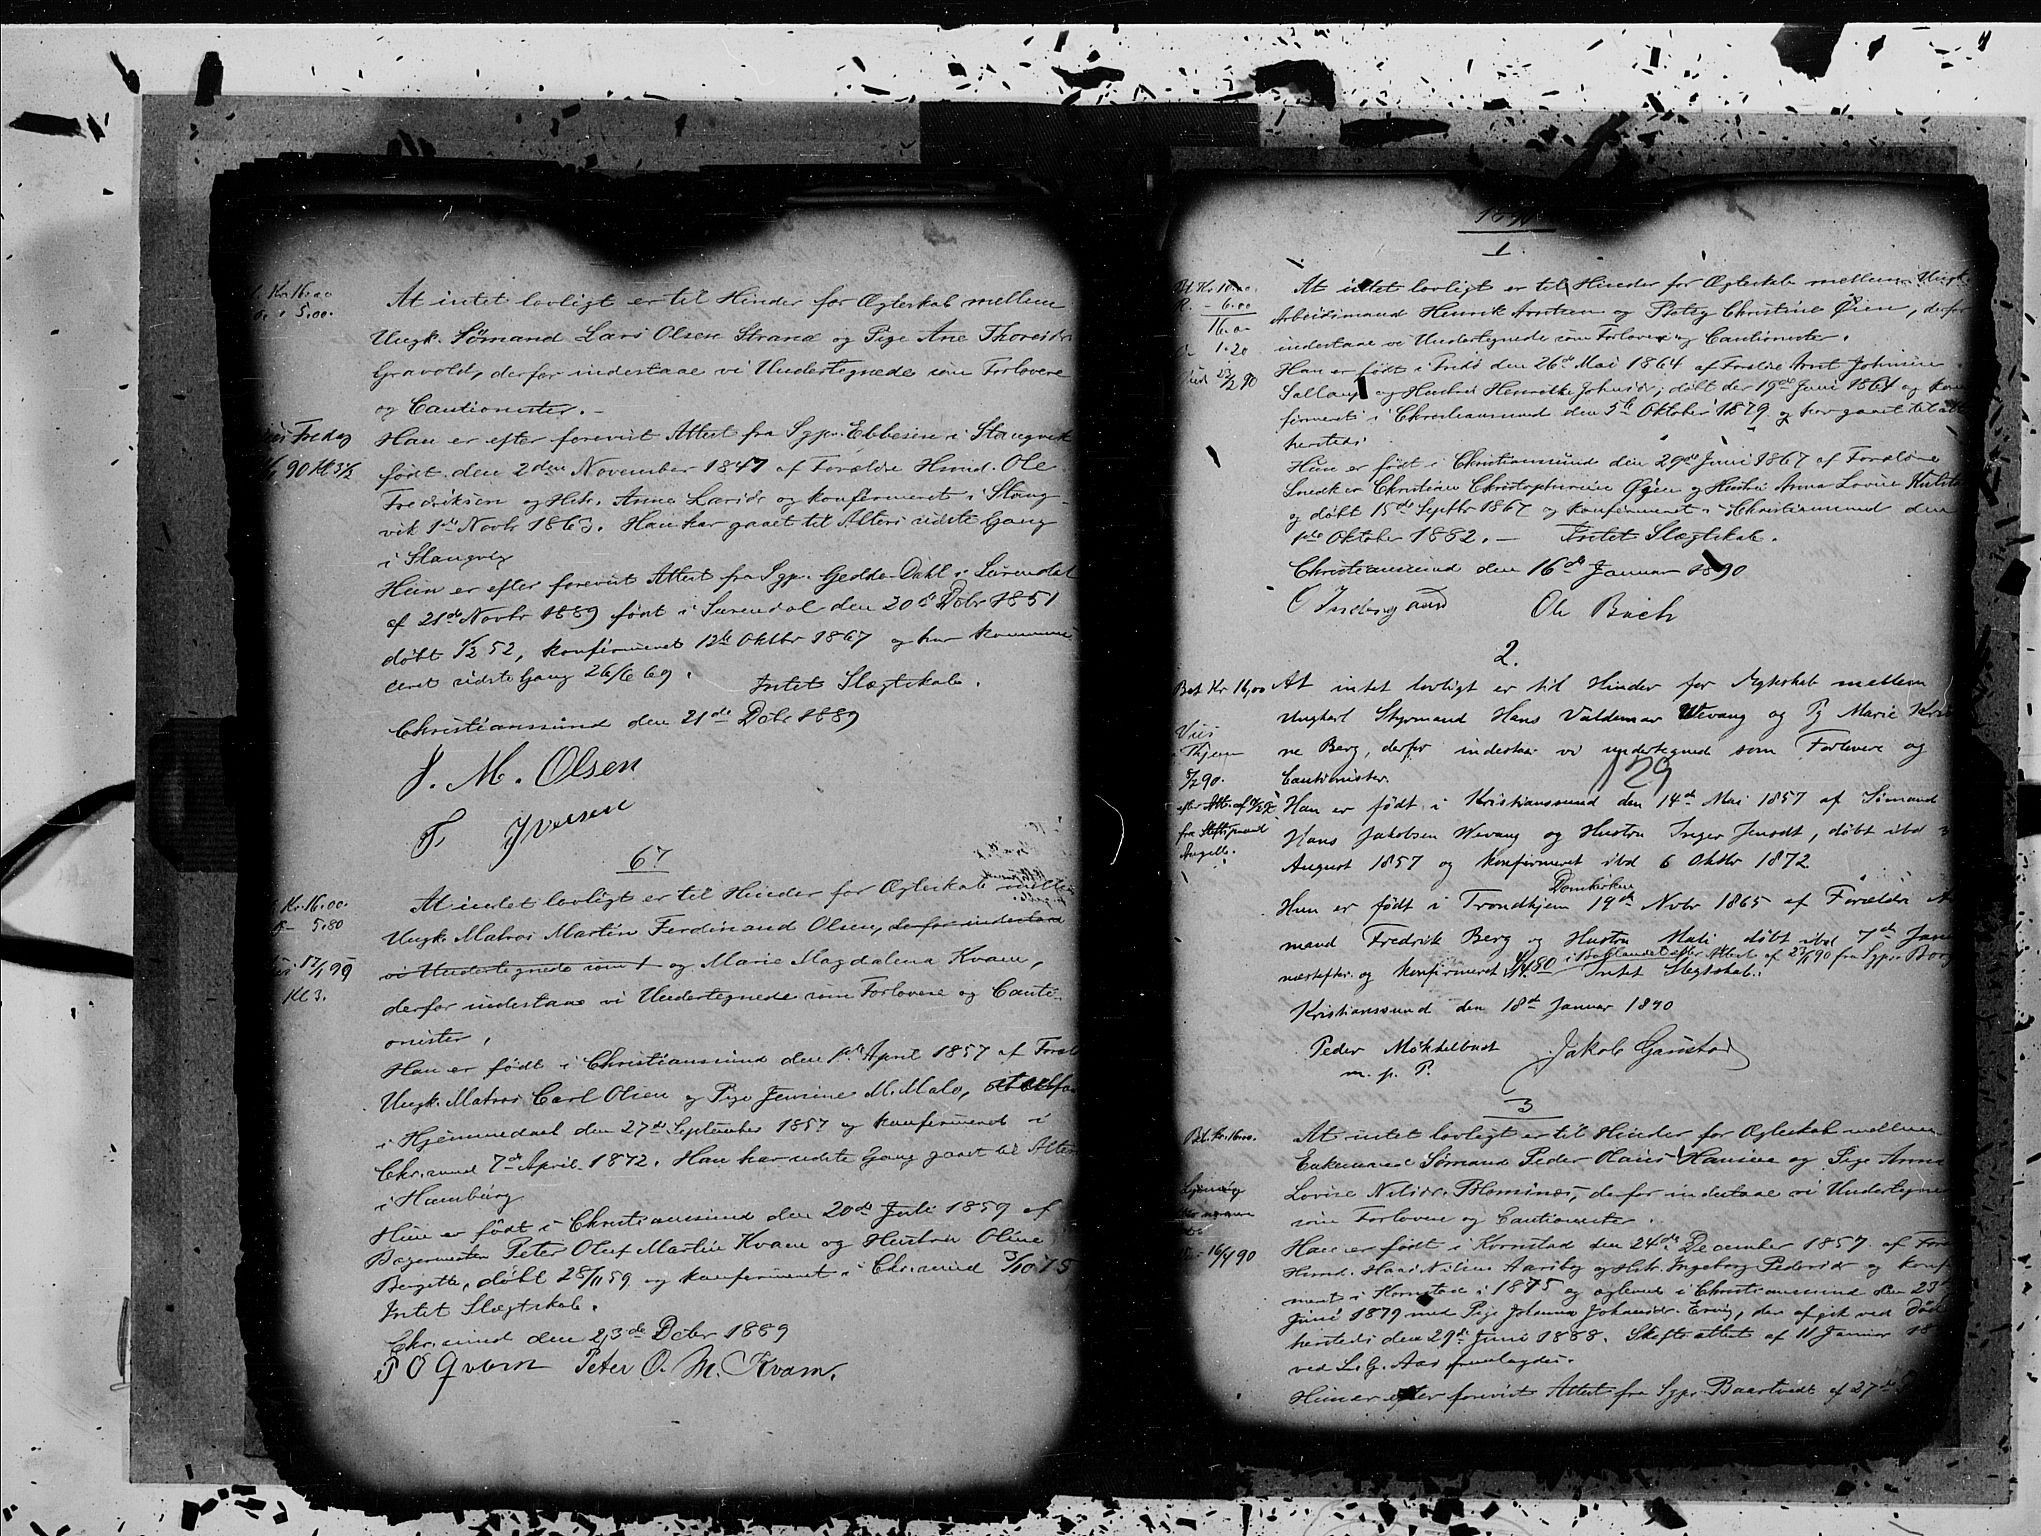 Kr. 16.00
5.00.
At intet lovligt er til Hinder for Ægteskab mellem
Ungk. Sømand Lars Olsen Strand og Pige Ane Thoresdr.
Gravold, derfor indestaae vi Undertegnede som Forlovere
og Cautionister. -
Han er efter foreviist Attest fra Sgpr. Ebbesen i Stangvik
90 Kl 3½
født den 2den November 1847 af Forældre Husmd. Ole
Fredriksen og Hstr. Anne Larsdr og konfirmeret i Stang-
vik 1ste Novbr 1863. Han har gaaet til Alters sidste Gang
i Stangvig
Hun er efter foreviist Attest fra Sgpr. Gedde-Dahl i Surendal
af 21de Novbr 1889 født i Surendal den 20de Dcbr 1851
døbt ½ 52, konfirmeret 12te Oktbr 1867 og har kommuni-
ceret sidste Gang 26/6 69. Intet Slægtskab.
Christianssund den 21de Dcbr 1889
J. M. Olsen
F. Iversen
67
Kr. 16.00.
5.80
At intet lovligt er til Hinder for Ægteskab mellem
Ungk. Matros Martin Ferdinand Olsen, derfor indestaae
vi Undertegnede som F og Marie Magdalena Kvam,
Kl 3.
derfor indestaae vi Undertegnede som Forlovere og Cauti-
onister.
Han er født i Christianssund den 1ste April 1857 af Foræld
Ungk. Matros Carl Olsen og Pige Jensine M. Malo,
i Hjemmedaab den 27de September 1857 og konfirmeret i
Chr.sund 7de April 1872. Han har sidste Gang gaaet til Alters
i Hamburg
Hun er født i Christianssund den 20de Juli 1859 af
Bagermester Peter Oluf Martin Kvam og Hustru Oline
Bergette, døbt 28/11 59 og konfirmeret i Chr.sund 3/10 75
Intet Slægtskab.
Chr.sund den 23de Dcbr 1889
P O Qvam Peter O. M. Kvam.
1890
1
Bt. Kr. 10.00
6.00
16.00
1.20
At intet lovligt er til Hinder for Ægteskab mellem Ungk.
Arbeidsmand Henrik Arntsen og Pige Christine Øien, derfor
indestaae vi Undertegnede som Forlovere og Cautionister.
Han er født i Fredø den 26de Mai 1864 af Forældre Arnt Johnsen
og Hustru Henrikke Johnsdr, døbt der 19de Juni 1864 og kon-
firmeret i Christianssund den 5te Oktober 1879 og har gaaet til Alters
hersteds.
Hun er født i Christianssund den 29de Juni 1867 af Forældre
Snedker Christian Christophersen Øien og Hustru Anna Lovise
og døbt 15de Septbr 1867 og konfirmeret i Christianssund den
1ste Oktober 1882. - Intet Slægtskab.
Christianssund den 16de Januar 1890
Ole Bach
2.
Bet Kr 16,00
At intet lovligt er til Hinder for Ægteskab mellem
Ungkarl Styrmand Hans Valdemar Wevang og Pg Marie Kris
Viet
i Thjem
ne Berg, derfor indestaar vi undertegnede som Forlovere og
129
Cautionister.
Han er født i Kristianssund den 14de Mai 1857 af Sømand
Hans Jakobsen Wevang og Hustru Inger Jensdt, døbt ibd
August 1857 og konfirmeret ibd 6 Oktbr 1872
Domkirken
Hun er født i Trondhjem 19de Novbr 1865 af Forældre
mand Fredrik Berg og Hustru Mali døbt ibd 7de Janu
næstefter og konfirmeret 4/4 80 i efter Attest af 27/1 90 fra Sgpr. Borg
Intet Slegtskab.
Kristianssund den 18de Januar 1890
Peder Møkkelbust Jakob Ganstad
m. p. P.
3
Bet. Kr. 16.00.
At intet lovligt er til Hinder for Ægteskab mellem
Enkemand Sømand Peder Olaus Hansen og Pige Anna
Lovise Nilsdr. Blomsnes, derfor indestaae vi Undertegnede
som Forlovere og Cautionister.
16/4 90
Han er født i Kornstad den 24de December 1857 af For
Husmd. Hans Nilsen Aarsbog og Hstr. Ingeborg Pedersdr og konf
meret i Kornstad i 1875 og ægteviet i Christianssund den 23
Juni 1879 med Pige Johanna Johansdr. Ervig, der afgik ved Døden
hersteds den 29de Juni 1888. Skifteattest af 11 Januar 18
ved L. G. Aas fremlagdes.
Hun er efter foreviist Attest fra Sgpr. Baartvedt af 27de